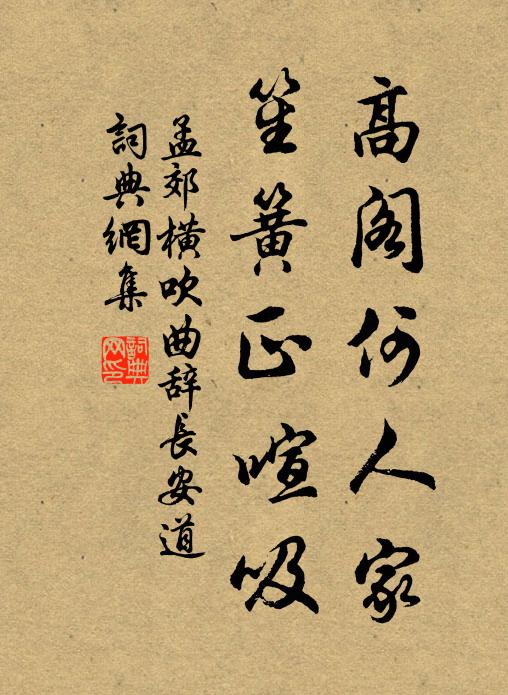 高阁何人家
笙簧正喧吸
孟郊横吹曲辞長安道
詞典網集
詞典网印